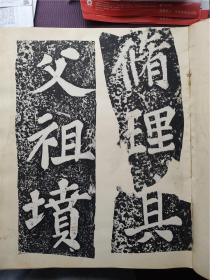 脩理具
父祖墳